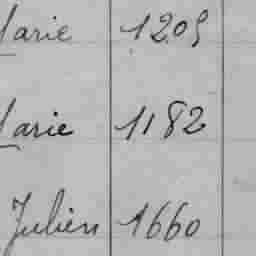 Marie 1209
Marie 1182
Julien 1660